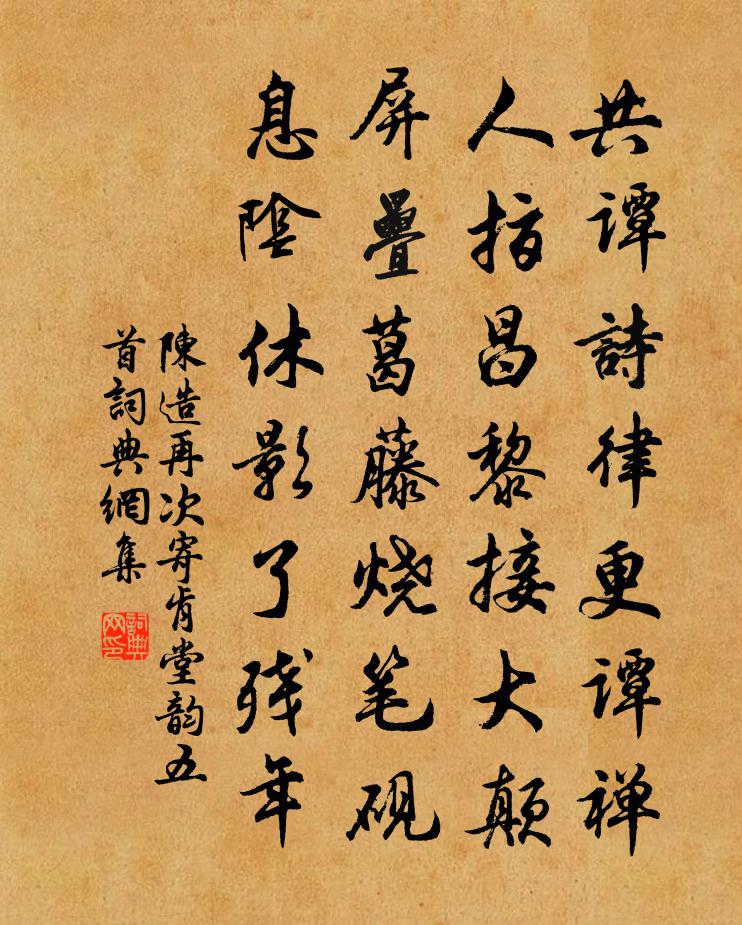 共谭詩律更谭禅
人指昌黎接大颠
屏疊葛藤烧笔砚
息陰休影了残年
陳造再次寄肯堂韵五
首詞典網集
詞典
网印